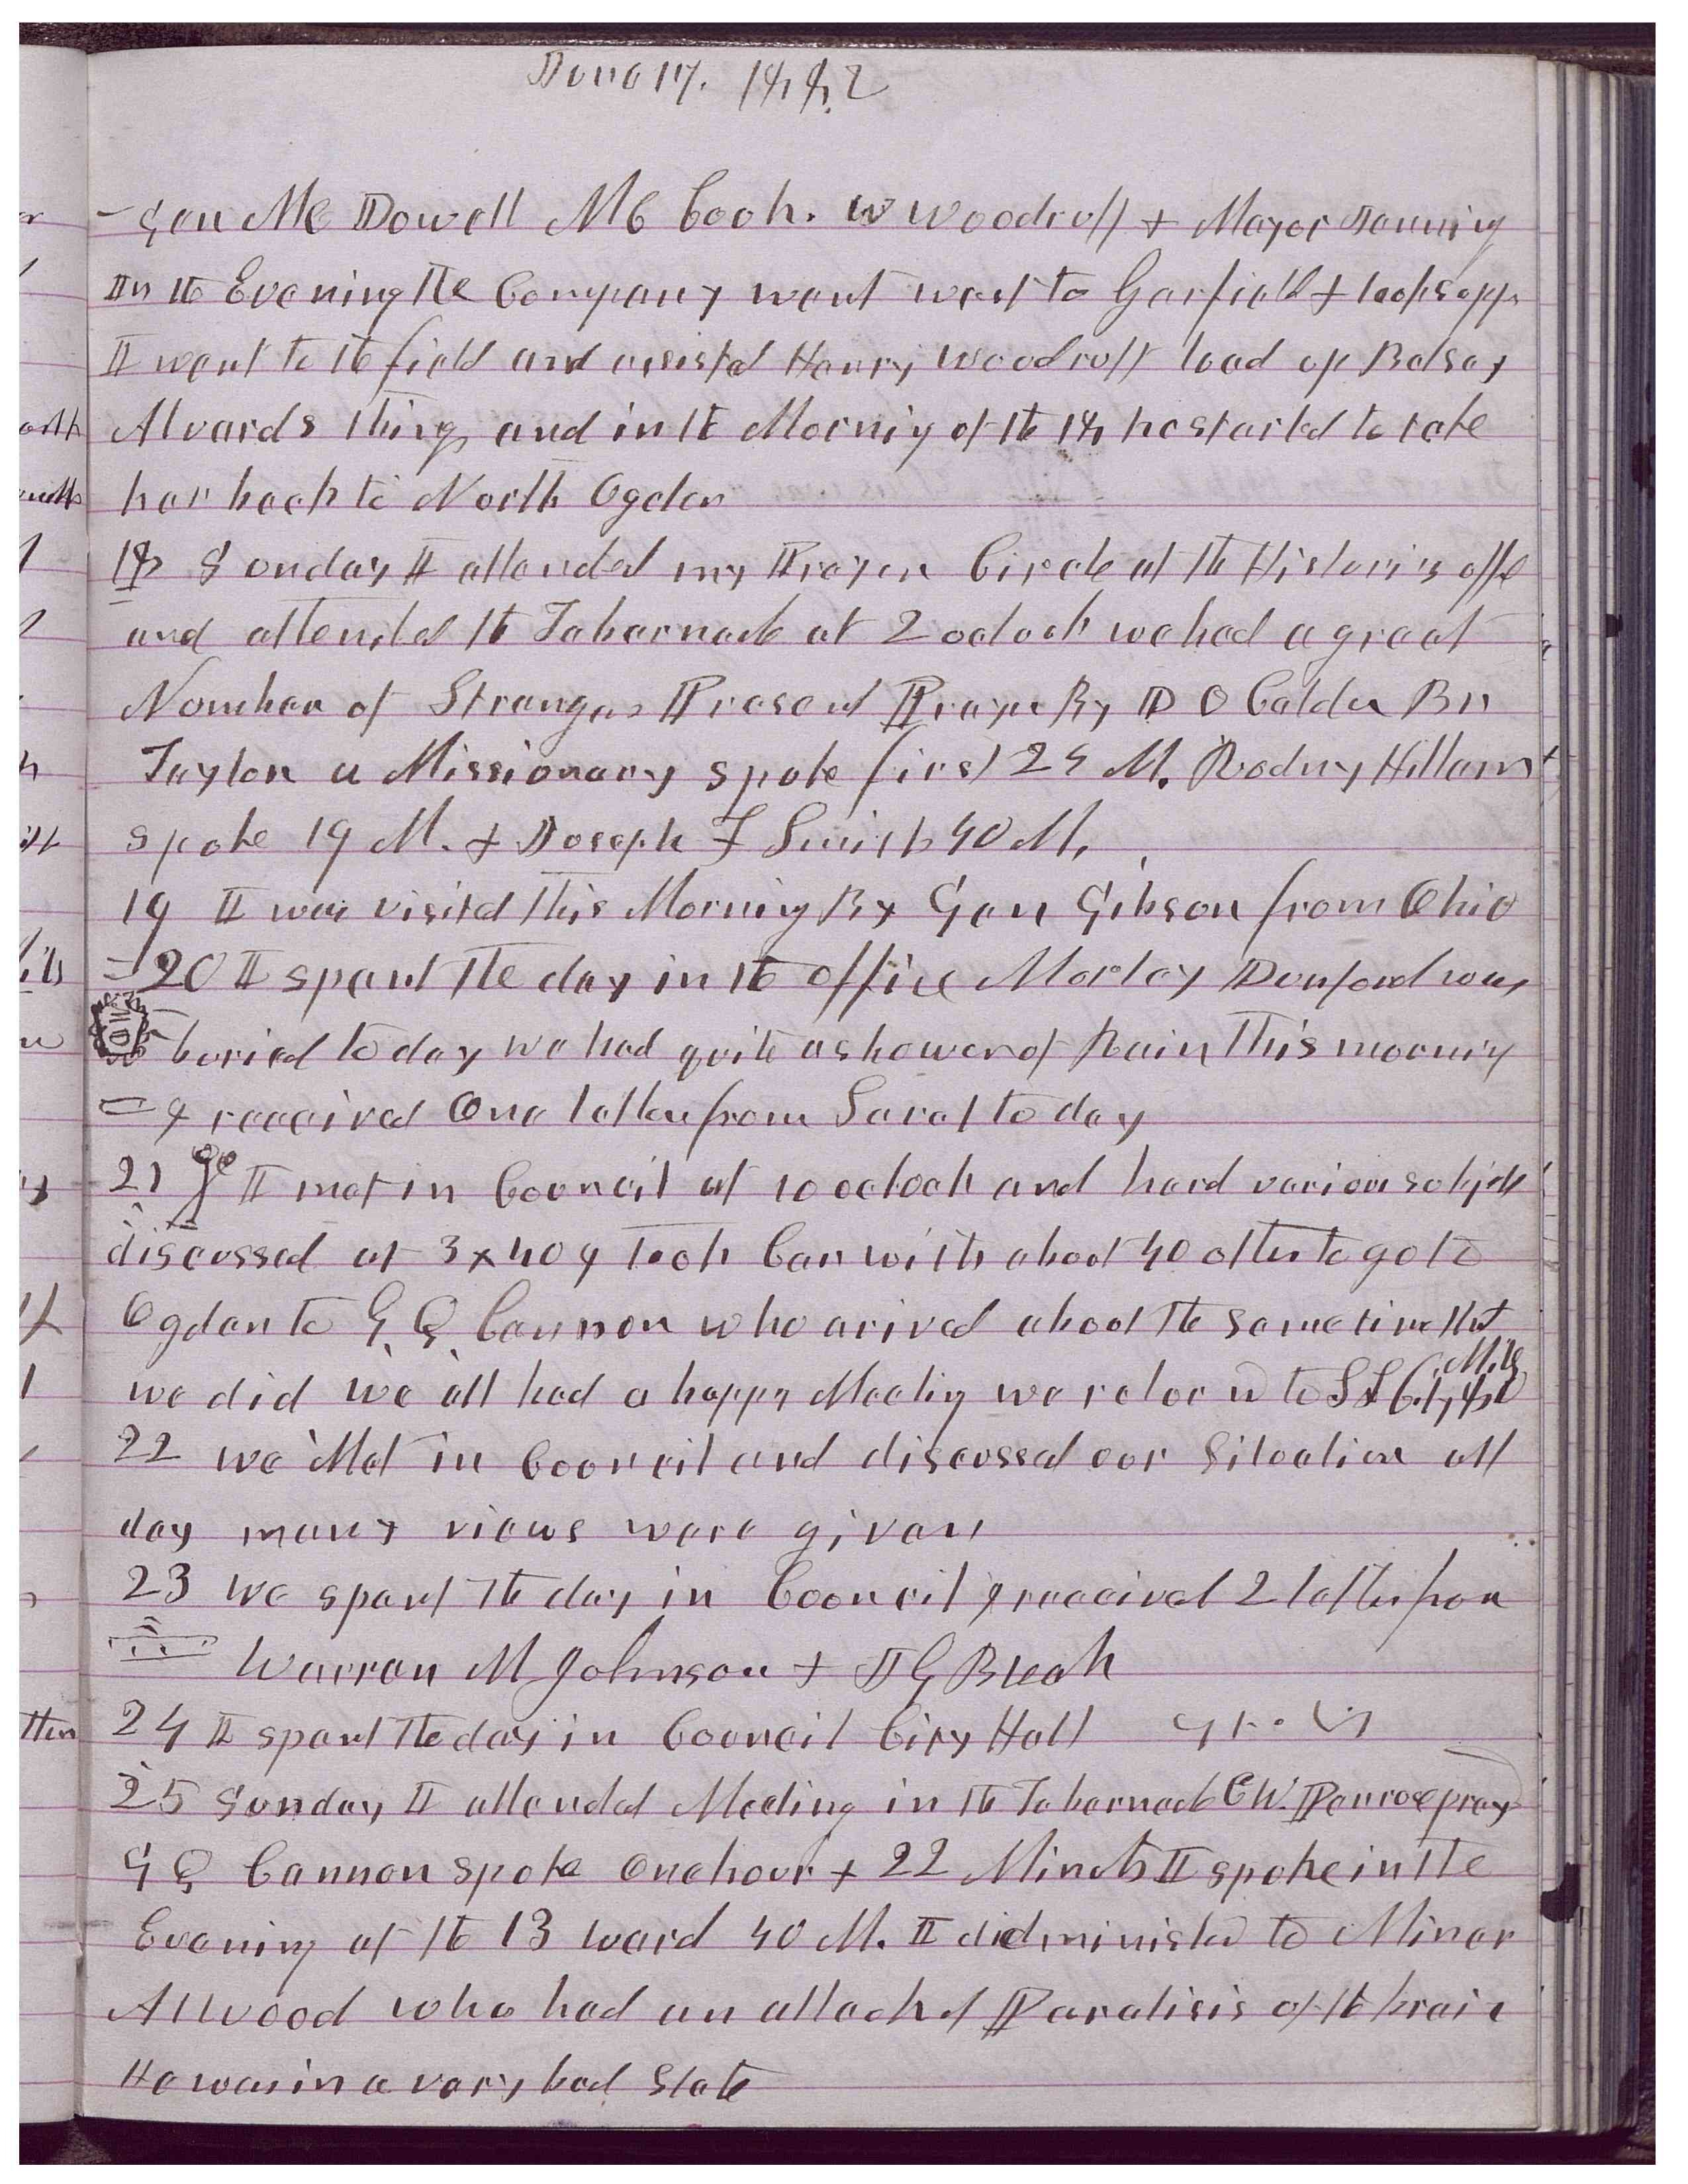 June 17, 1882
- Gen McDowell Mc Cook. W Woodruff + Mayor Jenning
In the Evening the Company went west to Garfield + took supper
I went to the field and assisted Henry Woodruff load up Betsey
Alvords things and in the Morning of the 18 he started to take
her back to North Ogden
18 Sunday I attended my Prayer Circle at the Historians offe
and attended the Tabernacle at 2 oclock we had a great
Number of Strangers Present Prayer By D O Calder Br
Taylor a Missionary spoke first 25 M. Rodney Hillam
spoke 19 M. + Joseph F Smith 40 M.
19 I was visited this Morning By Gen Gibson from Ohio
20 I spent the day in the office Morley Dunford was
buried to day we had quite a shower of Rain this morning
= I received One letter from Sarah to day
21 I met in Council at 10 oclock and heard various subjects
discussed at 3 x 40 I took Car with about 40 others to go to
Ogden to G. Q. Cannon who arived about the same time that
we did we all had a happy Meeting we returned to S L City 80
Mils
22 we Met in Council and discussed our Situation all
day many views were given
23 We spent the day in Council I received 2 letters from
Warren M Johnson + I G Bleak
24 I spent the day in Council City Hall
25 Sunday I attended Meeting in the Tabernacle C W. Penrose prayed
G Q Cannon spoke One hour + 22 Minuts I spoke in the
Evening at the 13 ward 40 M. I administed to Miner
Atwood who had an attack of Paralisis of the brain
He was in a very bad State